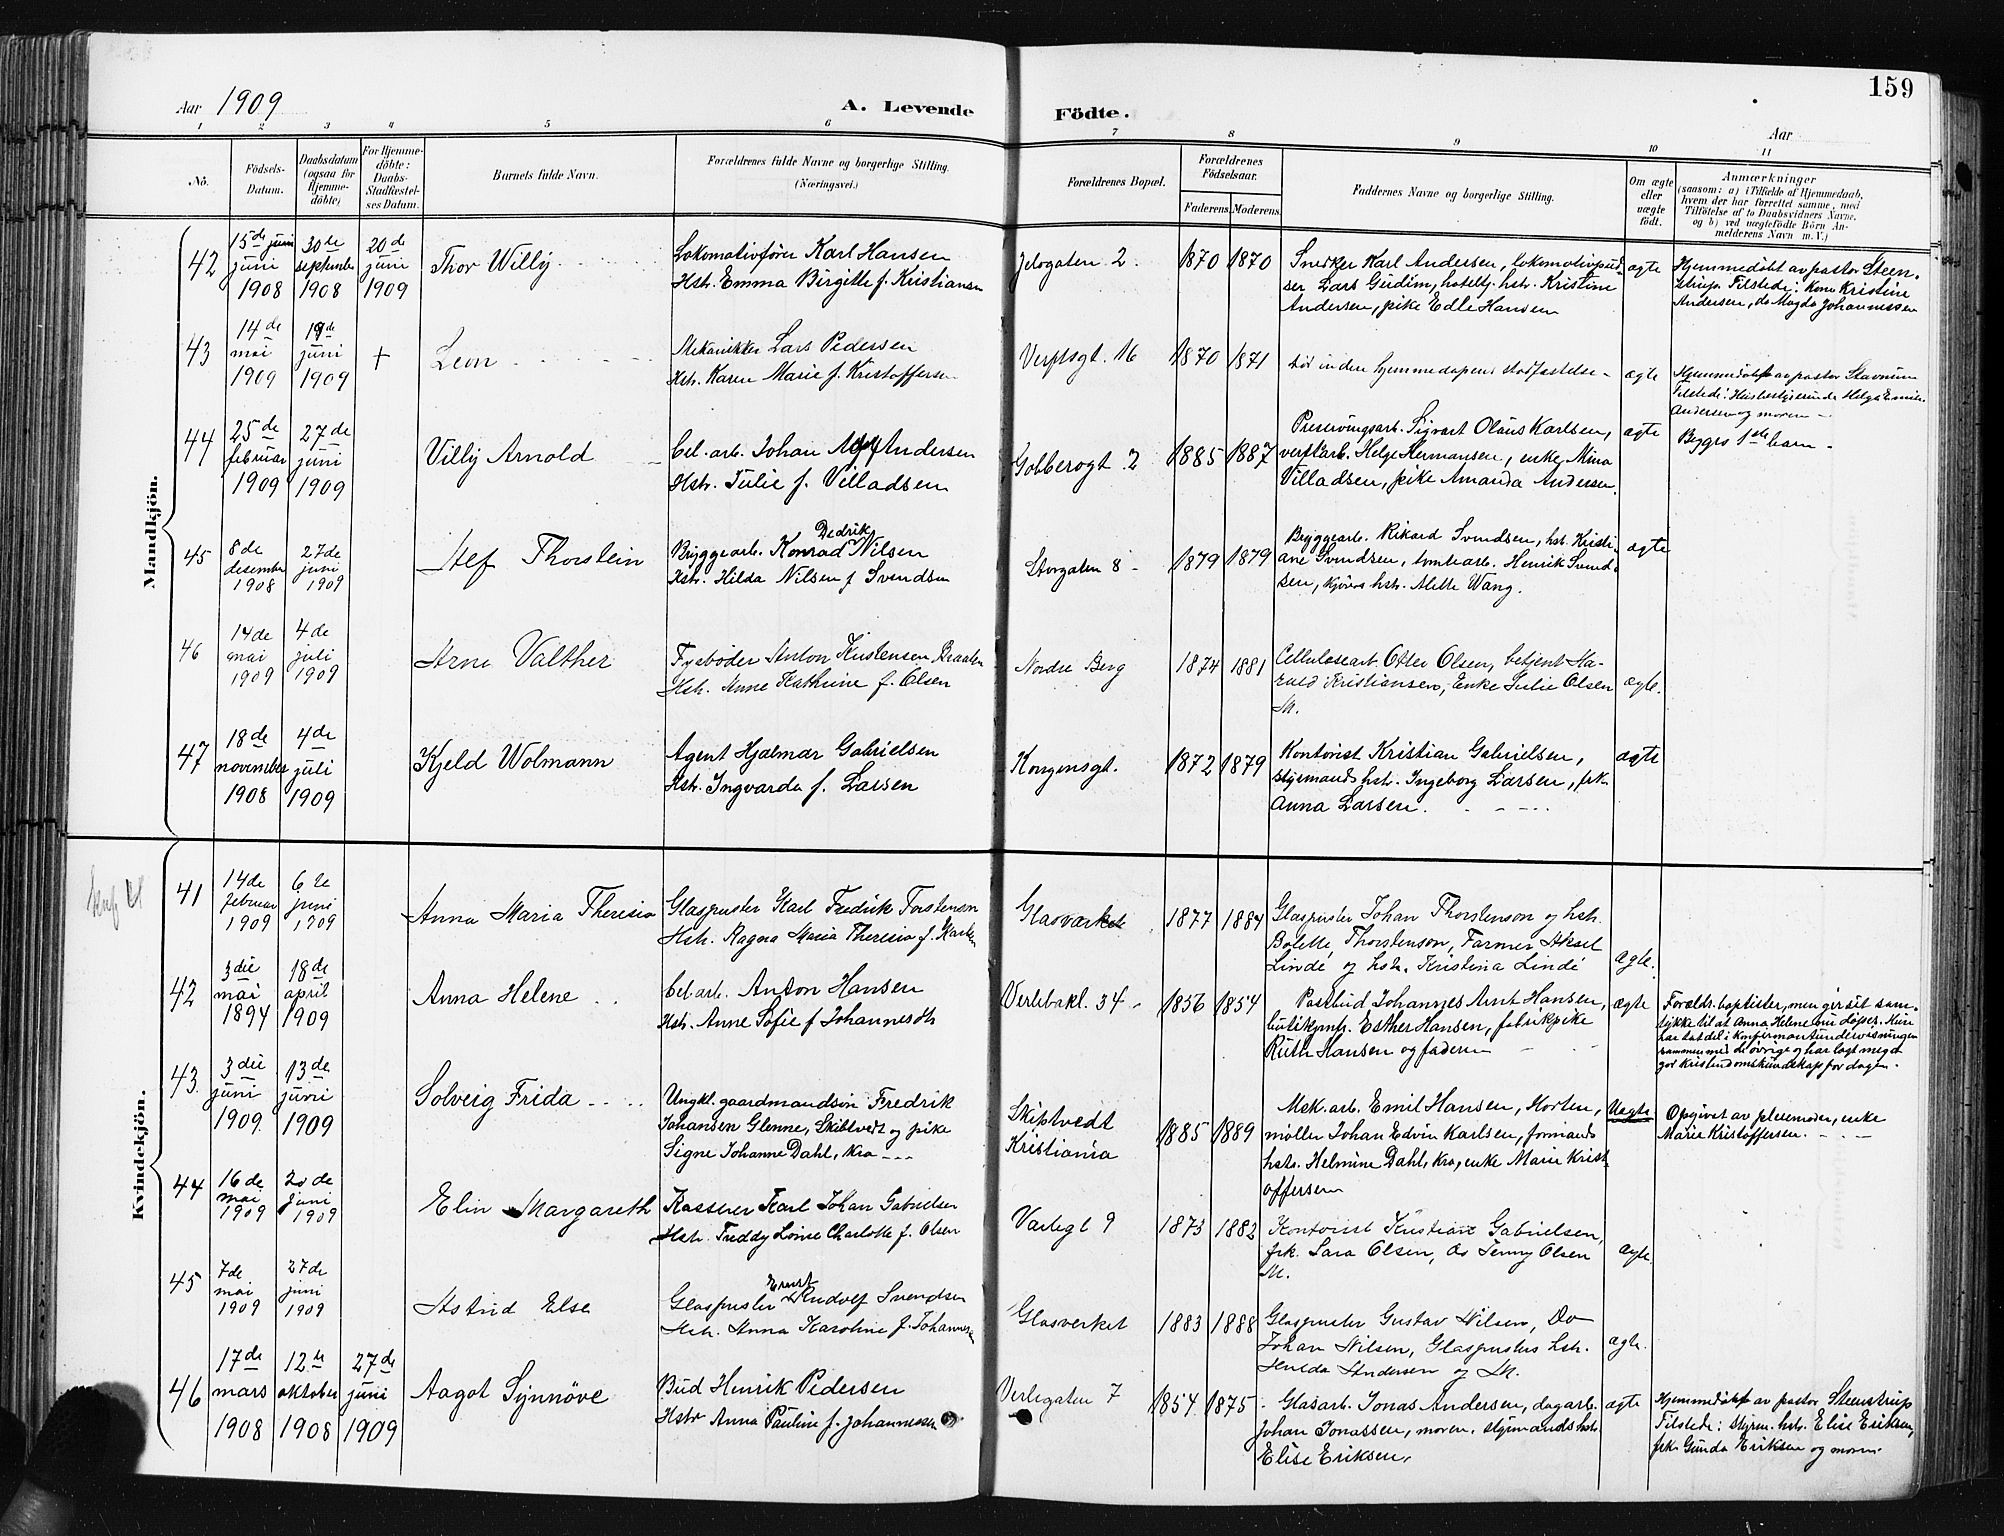 159
Aar 1909
A. Levende
Födte.
Aar
1 2 3 4 5 6 7 8 9 10 11
No.
Födsels-
Datum.
Daabsdatum
(ogsaa for
Hjemme-
döbte)
For Hjemme-
döbte:
Daabs-
Stadfæstel-
ses Datum.
Barnets fulde Navn.
Forældrenes fulde Navne og borgerlige Stilling.
(Næringsvei.)
Forældrenes Bopæl.
Forældrenes
Födselsaar.
Faderens. Moderens.
Faddernes Navne og borgerlige Stilling.
Om ægte
eller
uægte
födt.
Anmærkninger
(saasom: a) i Tilfælde af Hjemmedaab,
hvem der har forrettet samme, med
Tilföielse af to Daabsvidners Navne,
og b) ved uægtefödte Börn An-
melderens Navn m. V.)
Mandkjön.
42
15de juni
juni
1908
30te
september
1908
20de
juni
1909
Thor Willy
Lokomotivfører Karl Hansen
Hstr. Emma Birgitte f. Kristiansen
Jeløgaten 2.
1870 1870
Snedker Karl Andersen, lokomotivpud-
ser Lars Geidim, hotelbj. hstr. Kristine
Andersen, pike Edle Hansen
ægte
Hjemmedøbt av pastor Steen-
strup. Tilstede: Kone Kristine
Andersen, do Magda Johannessen
43
14de
mai
1909
19de
juni
1909
+
Leon
Mekanikker Lars Pedersen
Hstr. Karen Marie f. Kristoffersen
Verftsgt. 16
1870 1871
ægte
Hjemmedøbt av pastor Stavnum
Tilstede: Husbestyrerinde Helga Emilie
Andersen og moren
44
25de
februar
1909
27de
juni
1909
Villy Arnold
Cel. arb. Johan Alf Andersen
Hstr. Julie f. Villadsen
Gobberogt. 2
1885 1887
Preservingsarb. Sigvart Olaus Karlsen,
verftarb. Helge Hermansen, enke Mina
Villadsen, pike Amanda Andersen.
ægte
Bygrs 1ste barn
45
8de
desember
1908
27de
juni
1909
Alf Thorstein
Dedrik
Bryggearb. Konrad Nilsen
Hstr. Hilda Nilsen f Svendsen
Storgaten 8
1879 1879
Bryggearb. Rikard Svendsen, hst. Kristi-
ane Svendsen, tomtearb. Henrik Svend-
sen, kjørers hstr. Alette Wang.
ægte
46
14de
mai
1909
4de
juli
1909
Arne Valther
Fyrbøder Anton Kristensen Braaten
Hstr. Anne Kathrine f. Olsen
Nordre Berg
1874 1881
Cellulosearb Otter Olsen, betjent Ha-
rald Kristiansen, Enke Julie Olsen
M.
ægte.
47
18de
november
1908
4de
juli
1909
Kjeld Wolmann
Agent Hjalmar Gabrielsen
Hstr. Ingvarda f. Larsen
Kongensgt.
1872 1879
Kontorist Kristian Gabrielsen,
styrmands hstr. Ingeborg Larsen, frk.
Anna Larsen.
ægte
Kvindekjön.
41
14de
februar
1909
6te
juni
1909
Anna Maria Theresia
Glaspuster Karl Fredrik Torstenson
Hstr. Ragna Maria Theresia f. Karlsen
Glasværket
1877 1884
Glaspuster Johan Thorstenson og hstr.
Bolette Thorstenson, Farmer Aksel
Lindé og hstr. Kristina Lindé
ægte.
42
3die
mai
1894
18de
april
1909
Anna Helene
Cel. arb. Anton Hansen
Hstr. Anne Sofie f Johannesdtr
Verlebakl. 34
1856 1854
Postbud Johannes Arnt Hansen,
butikjmfr. Esther Hansen, fabrikpike
Ruth Hansen og faderen
ægte
Forældr. baptister, men gir sit sam-
tykke til at Anna Helene nu døpes. Hun
har tat del i konfirmantundervisningen
sammen med de øvrige og har lagt meget
god kristendomskundskap for dagen.
43.
3die
juni
1909.
13de
juni
1909
Solveig Frida
Ungkl. gaardmandsøn Fredrik
Johansen Glenne, Skibtvedt og pike
Signe Johanne Dahl, Kra
Skiptvedt
Kristiania
1885 1889
Mek. arb. Emil Hansen, Horten,
møller Johan Edvin Karlsen, formands
hstr. Helmine Dahl, Kra, enke Marie Krist-
offersen
Uægte
Opgivet av pleiemoder, enke
Marie Kristoffersen.
44
16de
mai
1909
20de
juni
1909
Elin Margareth
Kasserer Karl Johan Gabrielsen
Hstr. Freddy Lovise Charlotte f. Olsen
Varlegt 9
1873 1882
Kontorist Kristian Gabrielsen,
frk. Sara Olsen, Do Jenny Olsen
M.
ægte.
45
7de
mai
1909
27de
juni
1909
Astrid Else
Ernst
Glaspuster Rudolf Svendsen
Hstr. Anna Karoline f. Johannesen
Glasverket
1883 1888
Glaspuster Gustav Nilsen, Do
Johan Nilsen, Glaspusters hstr.
Hulda Andersen og M.
ægte.
46
17de
mars
1908
12te
oktober
1908
27de
juni
1909
Aagot Synnöve
Bud Henrik Pedersen
Hstr Anna Pauline f. Johannessen
Verlegaten 7
1854 1875
Glasarb. Jonas Andersen, dagarb.
Johan Jonassen, moren, styrmands hstr.
Elise Eriksen.
ægte
Hjemmedøbt av pastor Steenstrup
Tilstede: Styrm. hstr. Elise Eriksen,
frk. Gunda Eriksen og moren